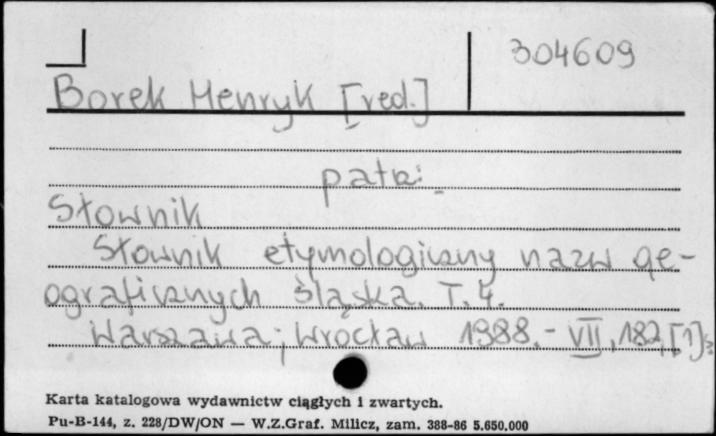 304609
Borek Henryk [red.]
patrz:
Słownik
Słownik etymologiczny nazw ge-
ograficznych Śląska. T. 4.
Warszawa; Wrocław 1988. - VII, 182, [1] s.
Karta katalogowa wydawnictw ciągłych i zwartych.
Pu-B-144, z. 228/DW/ON — W.Z.Graf. Milicz, zam. 388-86 5.650.000